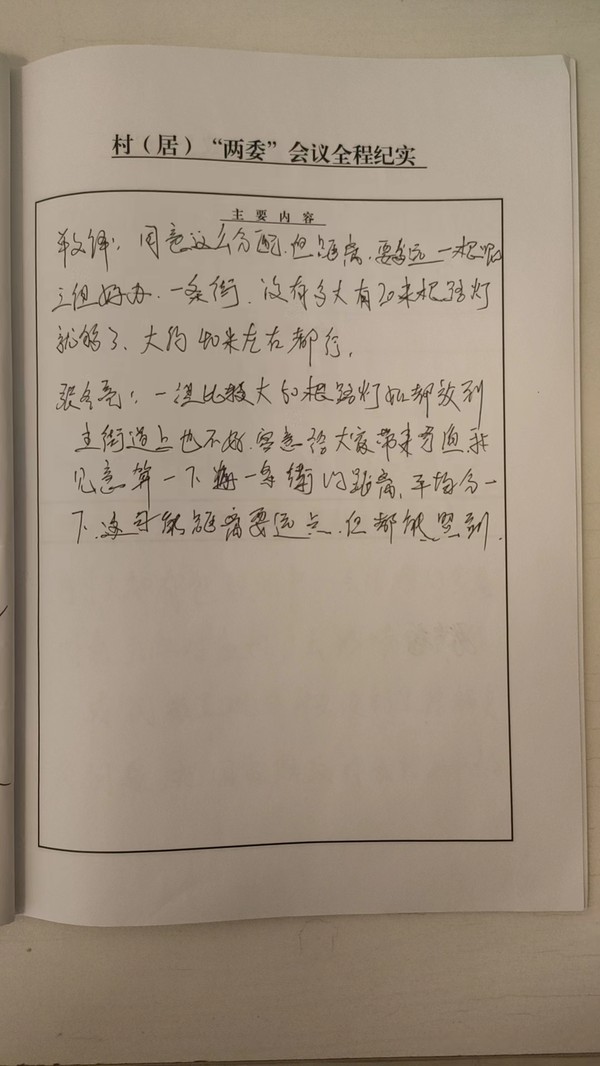 村（居）“两委”会议全程纪实
主要内容
同意这么分配，但距离，要多远一根呢
三组好办，一条街，没有多大有20来根路灯
就够了、大约40米左右都行，
张冬亮：一组比较大50根路灯如都放到
主街道上也不好，容易给大家带来 我
见意算一下每一条街的距离，平均分一
下，这可能距离要远点，但都能照到.